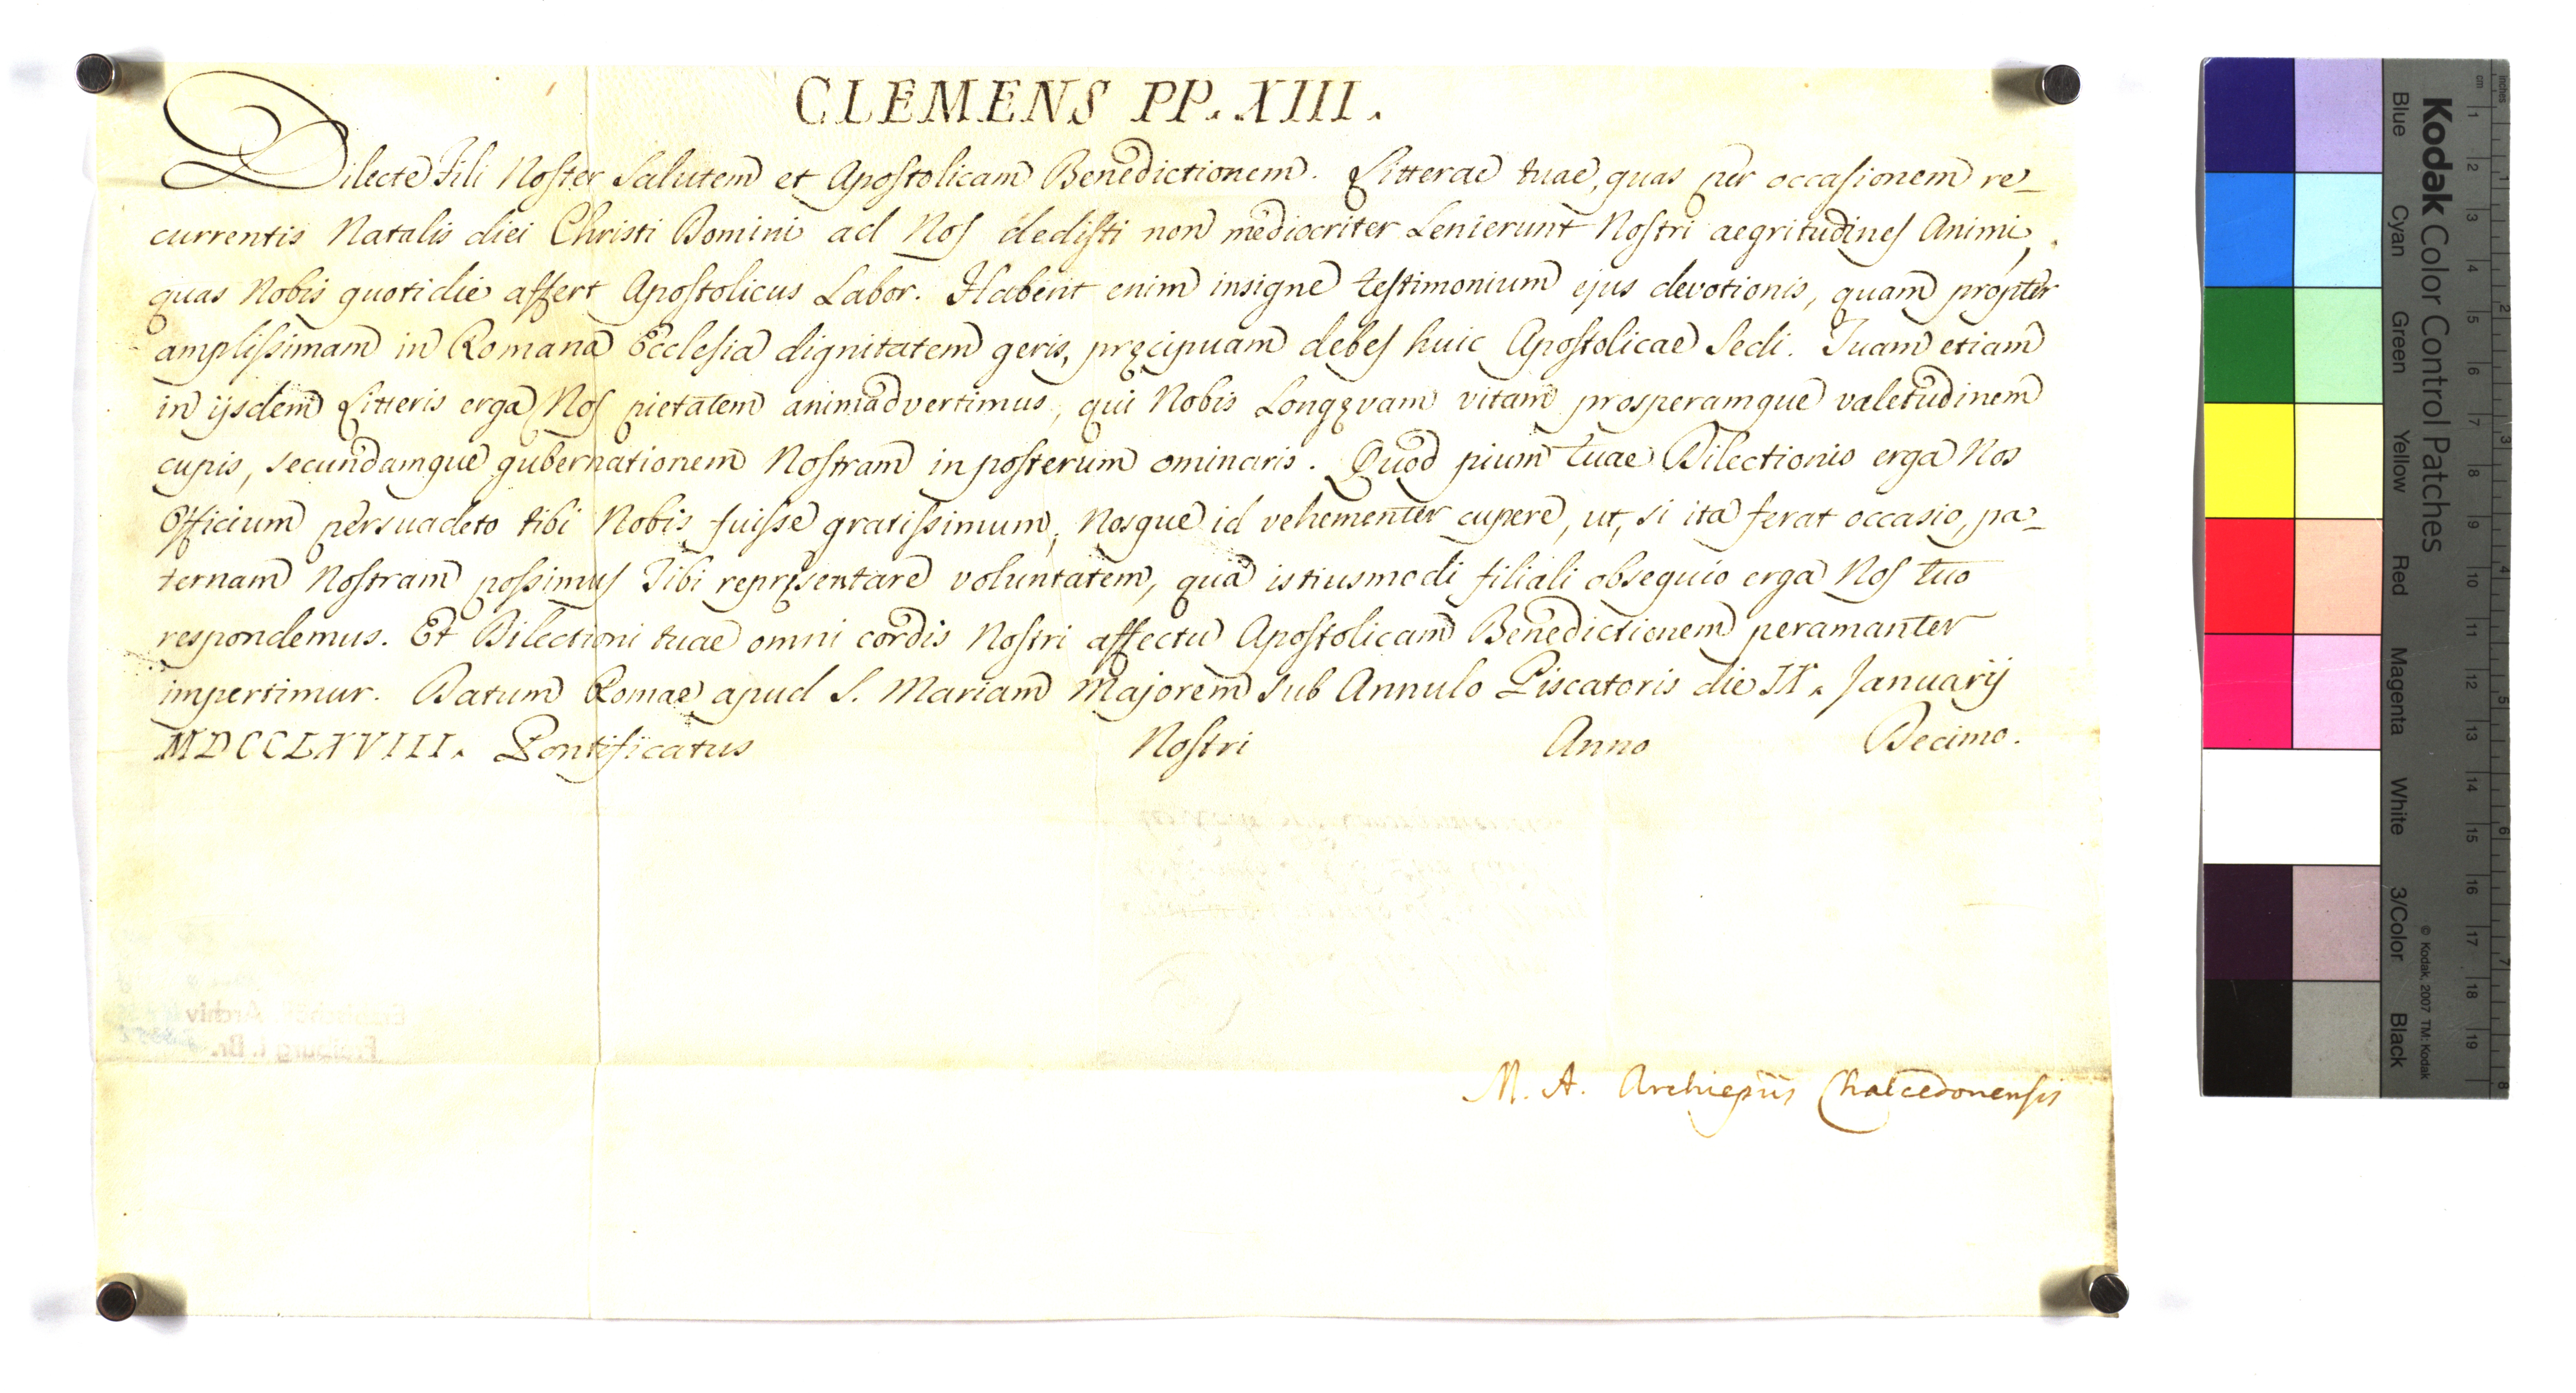 CLEMENS PP. XIII.
Dilecte Fili Noster Salutem et Apostolicam Benedictionem. Litterae tuae, quas per occasionem re_
currentis Natalis diei Christi Domini ad Nos dedisti non mediocriter Lenierunt Nostri aegritudines Animi,
quas Nobis quotidie affert Apostolicus Labor. Habent enim insigne testimonium ejus devotionis, quam propter
amplissimam in Romana Ecclesia dignitatem geris, pręcipuam debes huic Apostolicae Sedi. Tuam etiam
in ijsdem Litteris erga Nos pietatem animadvertimus, qui Nobis Longęvam vitam prosperamque valetudinem
cupis, secundamque gubernationem Nostram in posterum ominaris. Quod pium tuae Dilectionis erga Nos
Officium persuadeto tibi Nobis fuisse gratissimum, Nosque id vehementer cupere, ut, si ita ferat occasio, pa_
ternam Nostram possimus Tibi repręsentare voluntatem, quâ istiusmodi filiali obsequio erga Nos tuo
respondemus. Et Dilectioni tuae omni cordis Nostri affectu Apostolicam Benedictionem peramanter
impertimur. Datum Romae apud S. Mariam Majorem sub Annulo Piscatoris die IX. Januarij
MDCCLXVIII. Pontificatus Nostri Anno Decimo.
M. A. Archiepũs Chalcedonensis
Kodak Color Control Patches
Blue Cyan Green Yellow Red Magenta White 3/Color Black
© Kodak, 2007 TM: Kodak
cm 1 2 3 4 5 6 7 8 9 10 11 12 13 14 15 16 17 18 19
inches 1 2 3 4 5 6 7 8